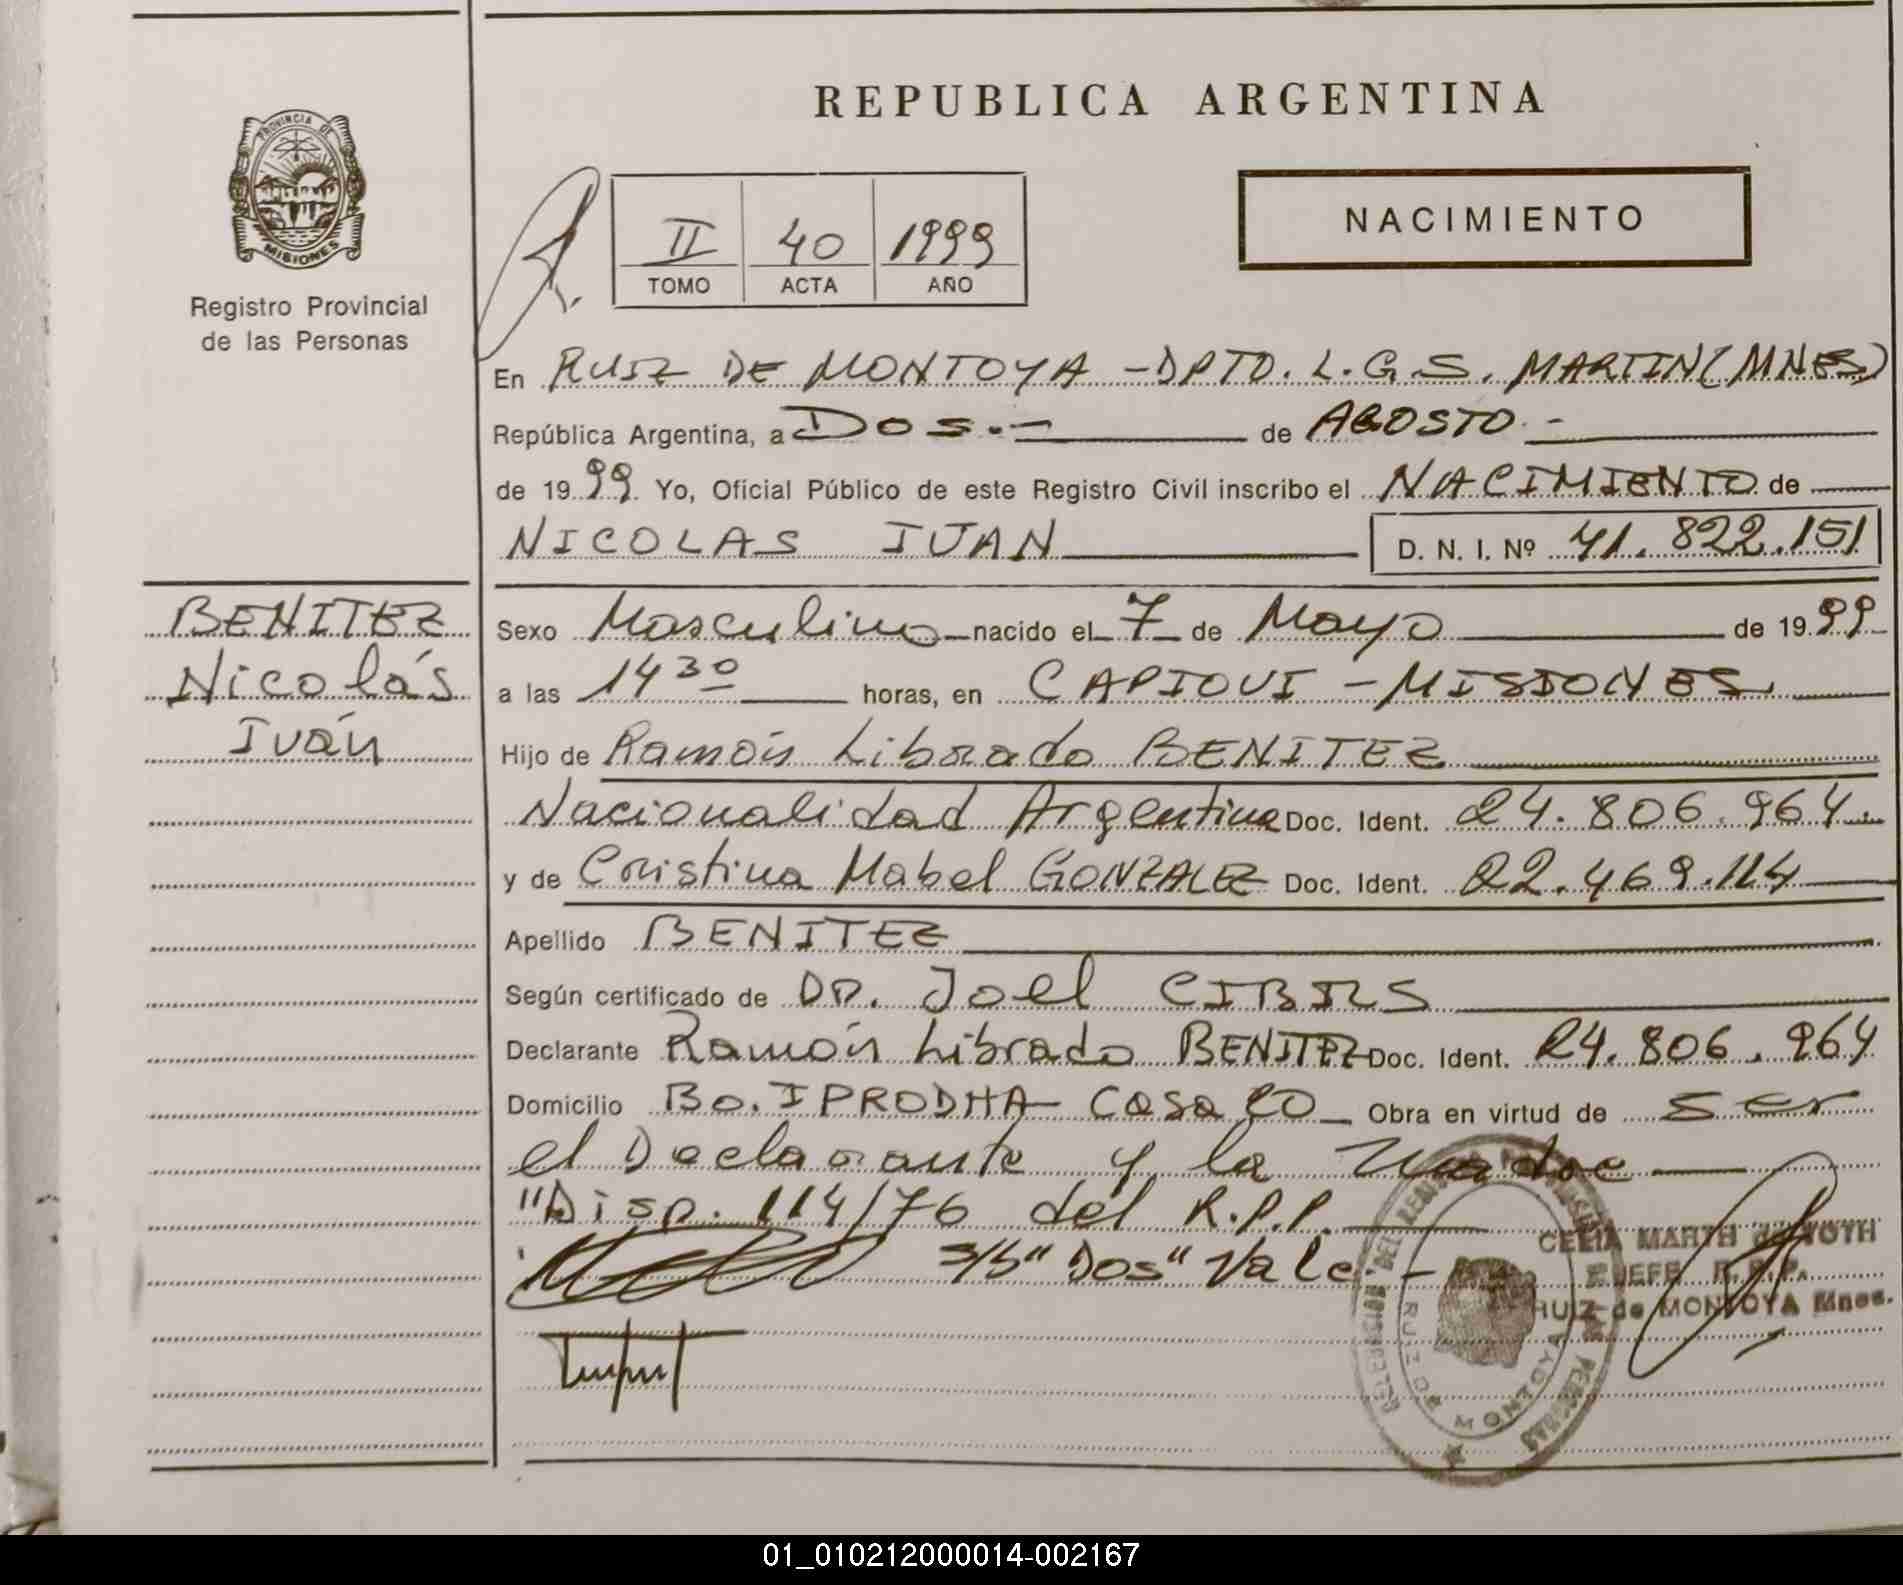 REPUBLICA ARGENTINA
PROVINCIA DE
MISIONES
Registro Provincial
de las Personas
II 40 1999
TOMO ACTA AÑO
NACIMIENTO
En RUIZ DE MONTOYA - DPTO. L.G.S. MARTIN (MNES)
República Argentina, a DOS.- de AGOSTO.-
de 1999. Yo, Oficial Público de este Registro Civil inscribo el NACIMIENTO de
NICOLAS IVAN D. N. I. Nº 41.822.151
BENITEZ
Nicolás
Iván
Sexo Masculino nacido el 7 de Mayo de 1999
a las 14 30 horas, en CAPIOVI - MISIONES
Hijo de Ramón Librado BENITEZ
Nacionalidad Argentina Doc. Ident. 24.806.964.
y de Cristina Mabel GONZALEZ Doc. Ident. 22.469.114
Apellido BENITEZ
Según certificado de DR. Joel CIBILS
Declarante Ramón Librado BENITEZ Doc. Ident. 24.806.964
Domicilio Bo. IPRODHA Casa 20 Obra en virtud de ser
el Declarante y la madre
"Disp. 114/76 del R.P.P.
s/b "Dos" Vale -
CELIA MARTH de
JEFE R.P.P.
RUIZ de MONTOYA Mnes.
RUIZ DE MONTOYA
01_010212000014-002167